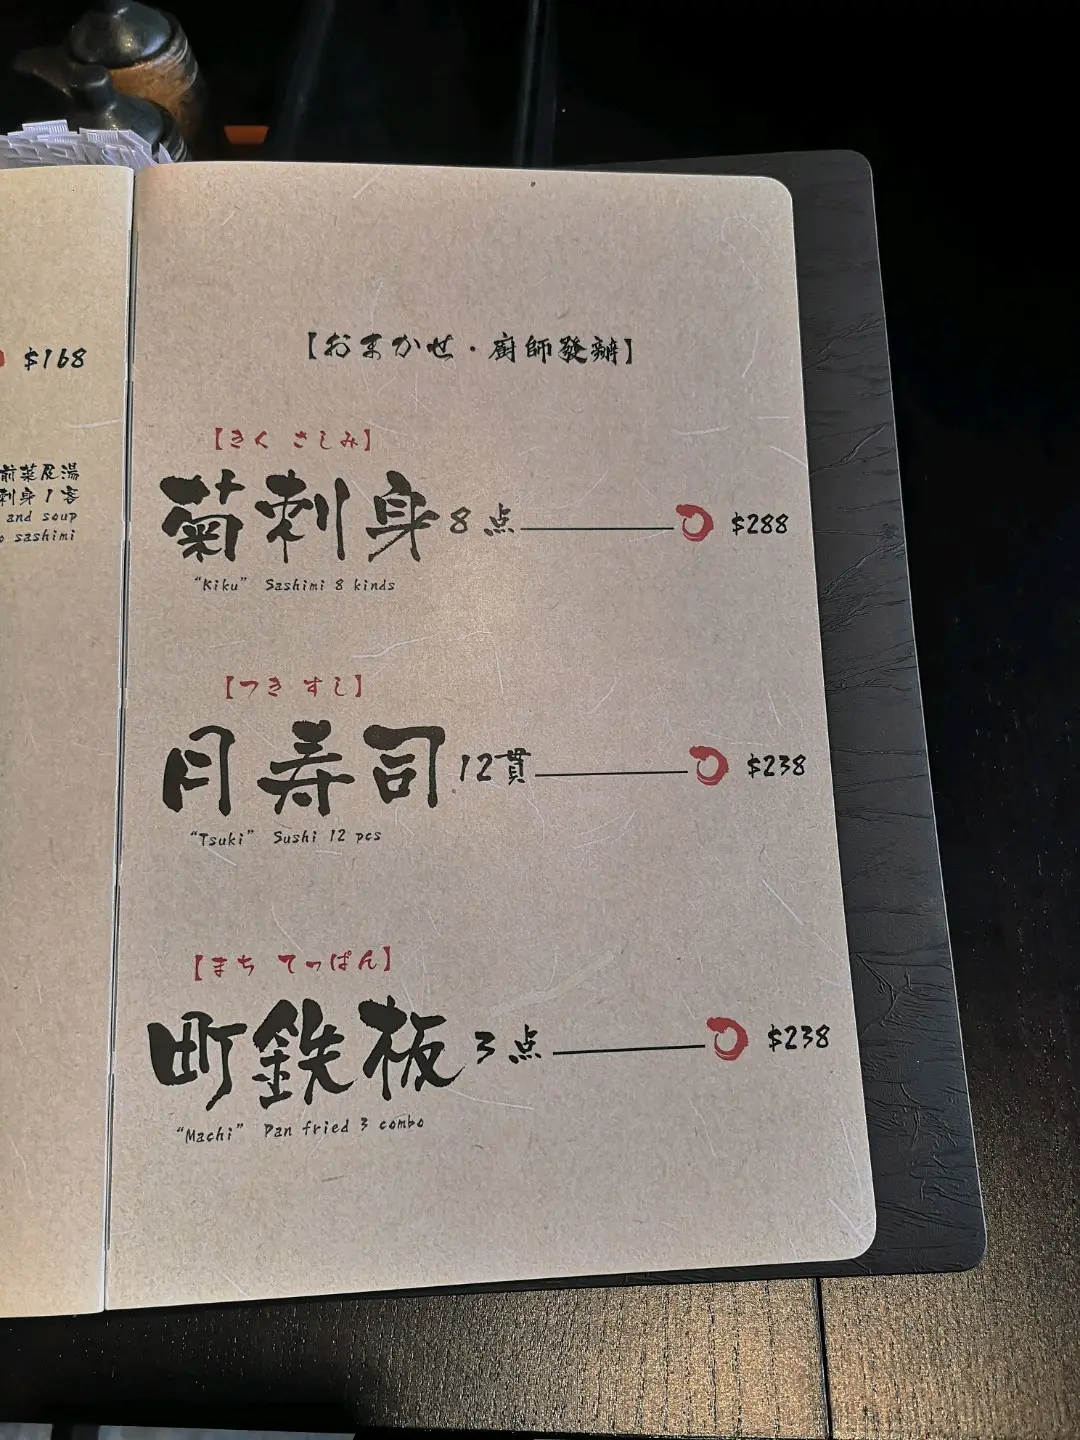 $168
前菜及湯
刺身1客
and soup
sashimi
【おまかせ・廚師發辦】
【きく さしみ】
菊刺身 8点 $288
“Kiku” Sashimi 8 kinds
【つき すし】
月寿司 12貫 $238
“Tsuki” Sushi 12 pcs
【まち てっぱん】
町鉄板 3点 $238
“Machi” Pan fried 3 combo